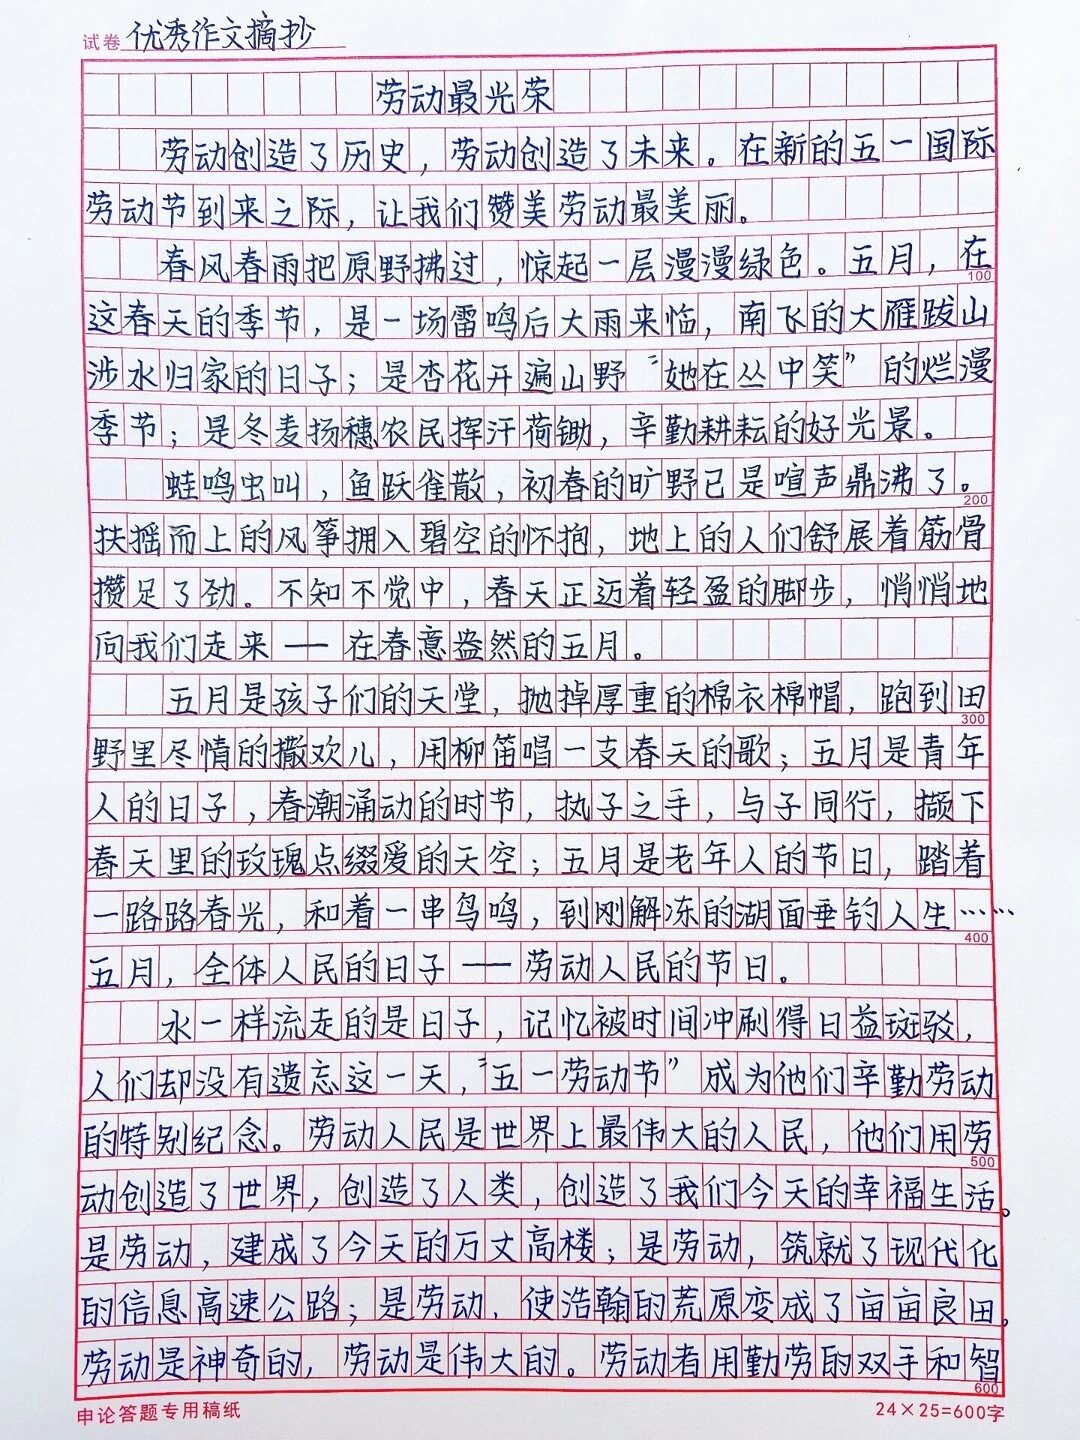 试卷 优秀作文摘抄
劳动最光荣
劳动创造了历史，劳动创造了未来。在新的五一国际
劳动节到来之际，让我们赞美劳动最美丽。
春风春雨把原野拂过，惊起一层漫漫绿色。五月，在
100
这春天的季节，是一场雷鸣后大雨来临，南飞的大雁跋山
涉水归家的日子；是杏花开遍山野“她在丛中笑”的烂漫
季节；是冬麦扬穗农民挥汗荷锄，辛勤耕耘的好光景。
蛙鸣虫叫，鱼跃雀散，初春的旷野已是喧声鼎沸了。
200
扶摇而上的风筝拥入碧空的怀抱，地上的人们舒展着筋骨
攒足了劲。不知不觉中，春天正迈着轻盈的脚步，悄悄地
向我们走来——在春意盎然的五月。
五月是孩子们的天堂，抛掉厚重的棉衣棉帽，跑到田
300
野里尽情的撒欢儿，用柳笛唱一支春天的歌；五月是青年
人的日子，春潮涌动的时节，执子之手，与子同行，撷下
春天里的玫瑰点缀爱的天空；五月是老年人的节日，踏着
一路路春光，和着一串鸟鸣，到刚解冻的湖面垂钓人生……
400
五月，全体人民的日子——劳动人民的节日。
水一样流走的是日子，记忆被时间冲刷得日益斑驳，
人们却没有遗忘这一天，“五一劳动节”成为他们辛勤劳动
的特别纪念。劳动人民是世界上最伟大的人民，他们用劳
500
动创造了世界，创造了人类，创造了我们今天的幸福生活。
是劳动，建成了今天的万丈高楼；是劳动，筑就了现代化
的信息高速公路；是劳动，使浩翰的荒原变成了亩亩良田。
劳动是神奇的，劳动是伟大的。劳动者用勤劳的双手和智
600
申论答题专用稿纸 24×25=600字